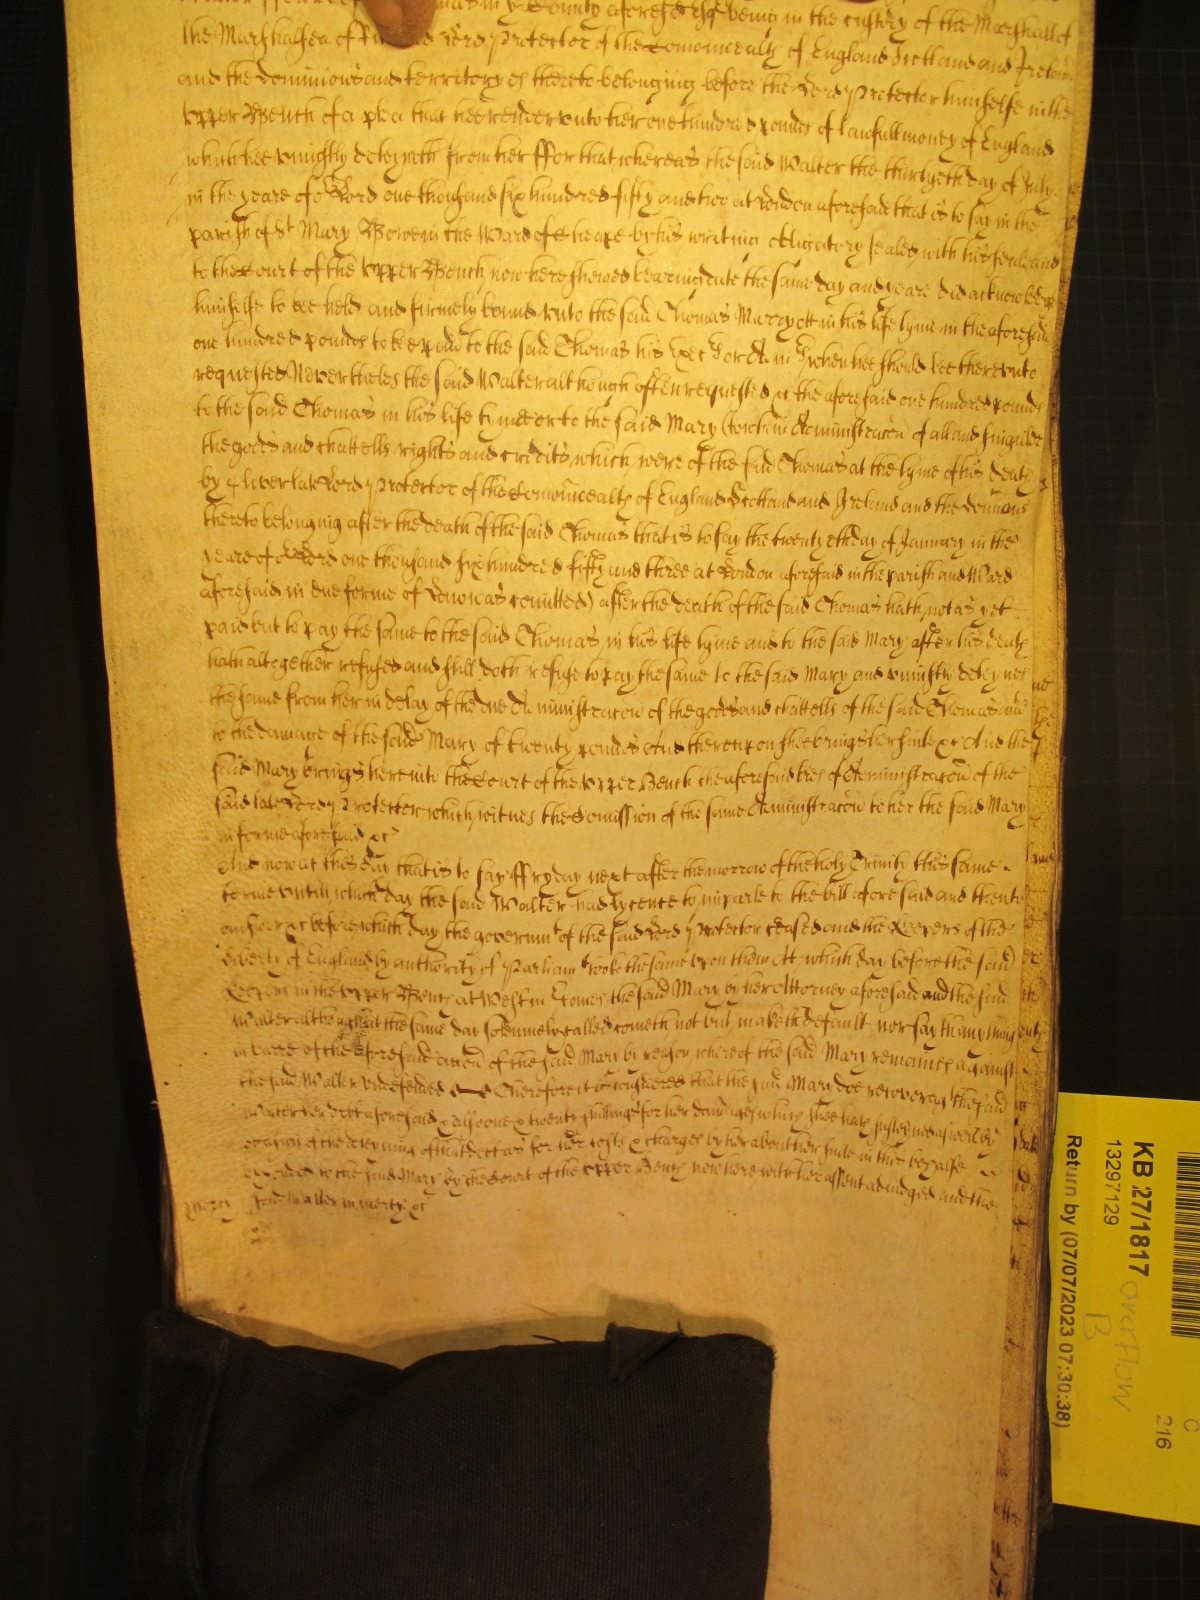 in yͤ County aforesd Esqʳ being in the custody of the Marshall of
the Marshalsea of Lord Protector of the Comonwealth of England Scotland and Ireland
and the dominions and territoryes thereto belonging before the Lord Protector himselfe in the
Upper Bench of a plea that hee render unto her one hundred pounds of lawfull money of England
which hee uniustly deteyneth from her Ffor that whereas the said Walter the thirtyeth day of July
in the yeare of oʳ Lord one thousand six hundred fifty and two at London aforesaid that is to say in the
parish of Sᵗ Mary Bowe in the Ward of Cheape by his writing obligatory sealed with his seale and
to the Court of the Upper Bench now here shewed bearing date the same day and yeare did acknowledge
himselfe to bee held and firmely bound unto the said Thomas Marryott in his life tyme in the aforesaid
one hundred pounds to bee paid to the said Thomas his Execʳˢ or Adminʳˢ when hee should bee thereunto
requested Nevertheles the said Walter although often requested &c the aforesaid one hundred pounds
to the said Thomas in his life tyme or to the said Mary (to whom Administracon of all and singuler
the goods and chattells rights and credits which were of the said Thomas at the tyme of his death
by Oliver late Lord Protector of the Comonwealth of England Scotland and Ireland and the dominions
thereto belonging after the death of the said Thomas that is to say the twentyeth day of January in the
yeare of oʳ Lord one thousand six hundred fifty and three at London aforesaid in the parish and Ward
aforesaid in due forme of Law was comitted) after the death of the said Thomas hath not as yet
paid but to pay the same to the said Thomas in his life tyme and to the said Mary after his death
hath altogether refused and still doth refuse to pay the same to the said Mary and uniustly deteynes
the same from her in delay of the due Administracon of the goods and chattells of the said Thomas and
to the damage of the said Mary of twenty pounds And thereupon shee brings her suite &c And the
said Mary brings here into the Court of the Upper Bench the aforesaid lres of Administracon of the
said late Lord Protector which witnes the Comission of the same Administracon to her the said Mary
in forme aforesaid &c
And now at this day that is to say Ffryday next after the morrow of the holy Trinity this same
terme untill which day the said Walter had lycence to imparle to the bill aforesaid and then to
answer &c before which day the governmᵗ of the said Lord Protector ceased and the Keepers of the
liberty of England by authority of Parliamᵗ tooke the same upon them Att which day before the said
Keepers in the Upper Bench at Westm comes the said Mary by her Attorney aforesaid and the said
Walter although at the same day solemnely called cometh not but maketh default nor say th any thing
in barre of the aforesaid accon of the said Mary by reason whereof the said Mary remaines against
the said Walter undefended Therefore it is considered that the said Mary doe recover agᵗ the said
Walter her debt aforesaid & alsoe twenty shillings for her damages which shee hath susteined aswell by
occasion of the deteyning of that debt as for her costs & charges by her about her suite in this behalfe
to the said Mary by the Court of the Upper Bench now here with her assent adiudged and the
Mercy said Walter in mercy &c
KB 27/1817
13297129
Return by (07/07/2023 07:30:38)
overflow
B
C
216